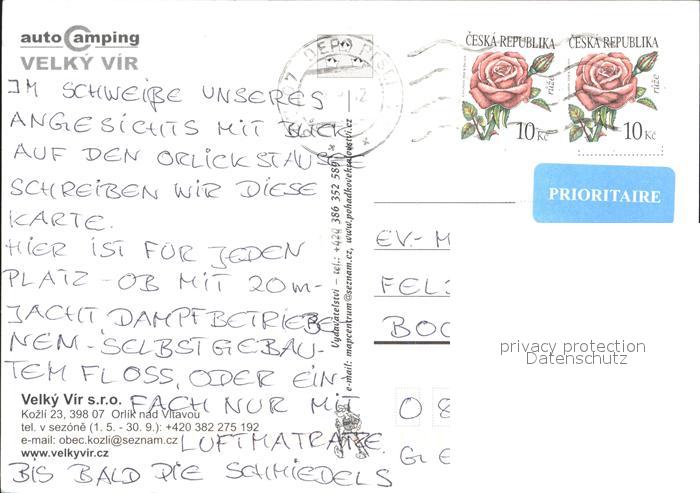 autoCamping
VELKÝ VÍR
IM SCHWEIßE UNSERES
ANGESICHTS MIT BLICK
AUF DEN ORLICKSTAUSEE
SCHREIBEN WIR DIESE
KARTE.
HIER IST FÜR JEDEN
PLATZ - OB MIT 20m-
JACHT DAMPFBETRIEBE
NEM - SELBSTGEBAU-
TEM FLOSS, ODER EIN-
FACH NUR MIT
LUFTMATRATZE.
BIS BALD DIE SCHMIEDELS
Velký Vír s.r.o.
Kožlí 23, 398 07 Orlík nad Vltavou
tel. v sezóně (1. 5. - 30. 9.): +420 382 275 192
e-mail: obec.kozli@seznam.cz
www.velkyvir.cz
Vydavatelství – tel.: +420 386 352 589
e-mail: mapcentrum@seznam.cz, www.pohadkovekralovstvi.cz
DEPO
ČESKÁ REPUBLIKA
růže
10 Kč
ČESKÁ REPUBLIKA
růže
10 Kč
PRIORITAIRE
EV.-M
FELS
BOC
08
GLE
privacy protection
Datenschutz